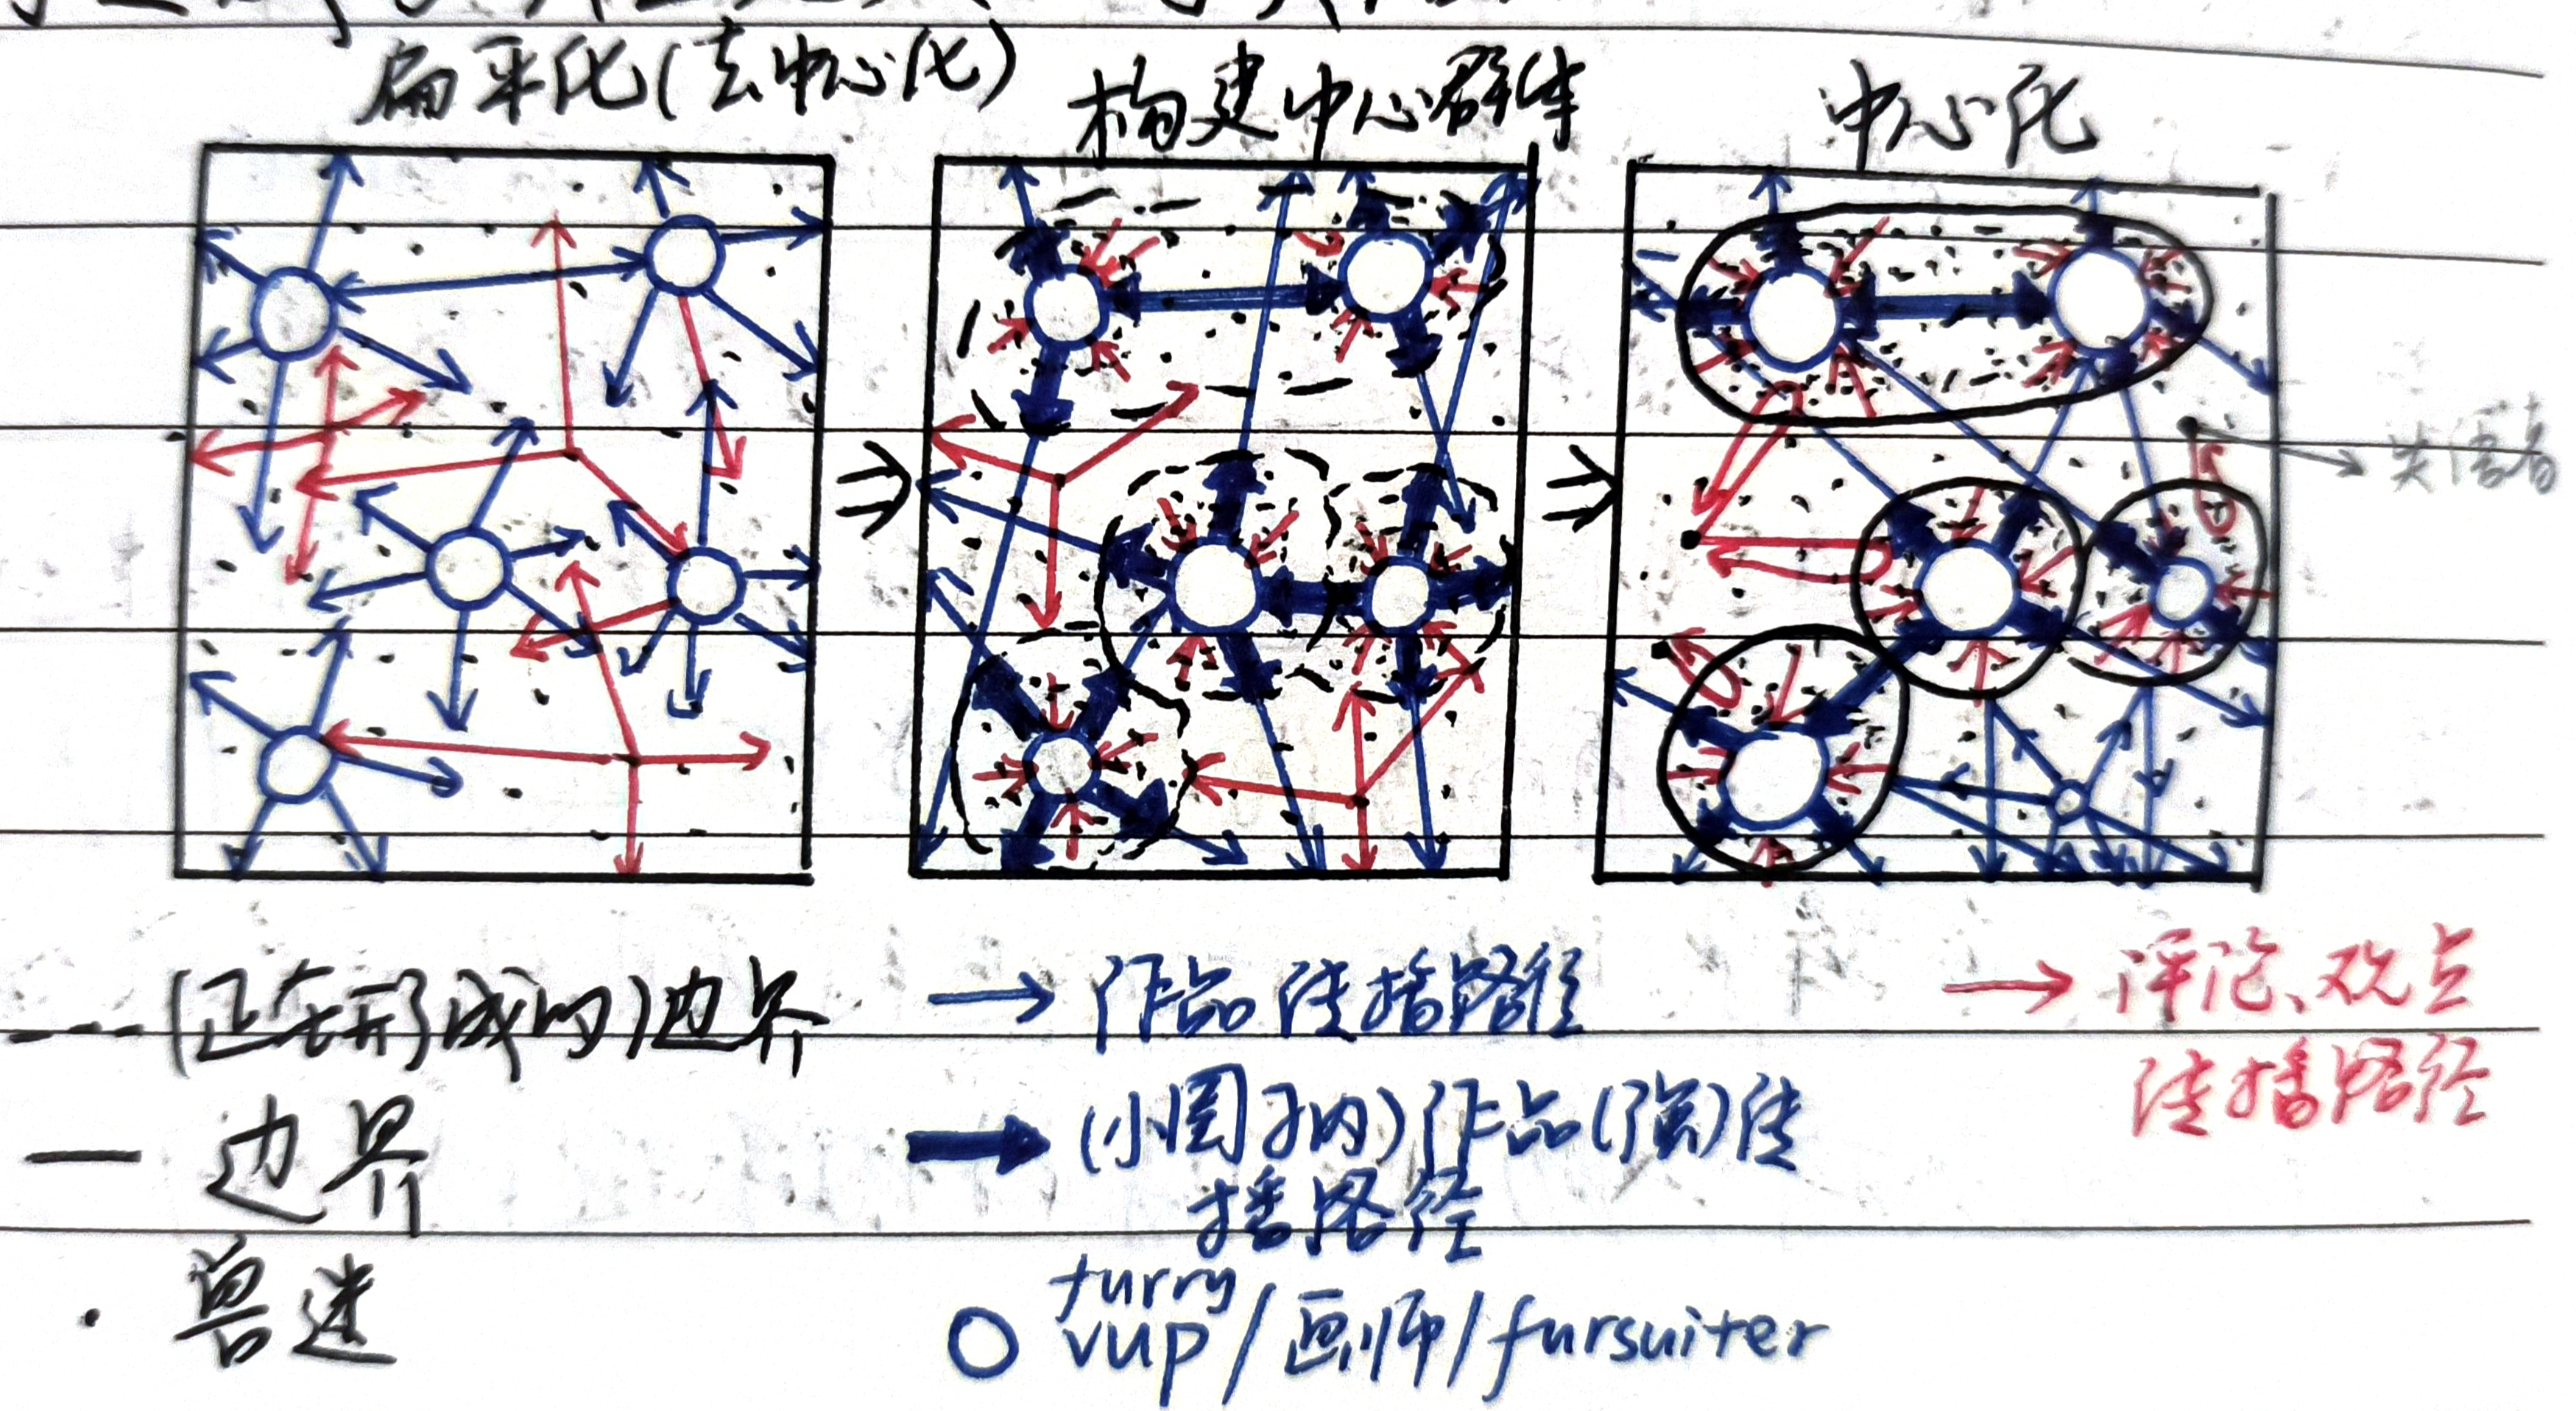 扁平化(去中心化)
构建中心群体
中心化
失语者
(正在形成的)边界
作品传播路径
评论、观点
传播路径
边界
(小圈子内)作品(强)传
播路径
兽迷
furry
vup/画师/fursuiter